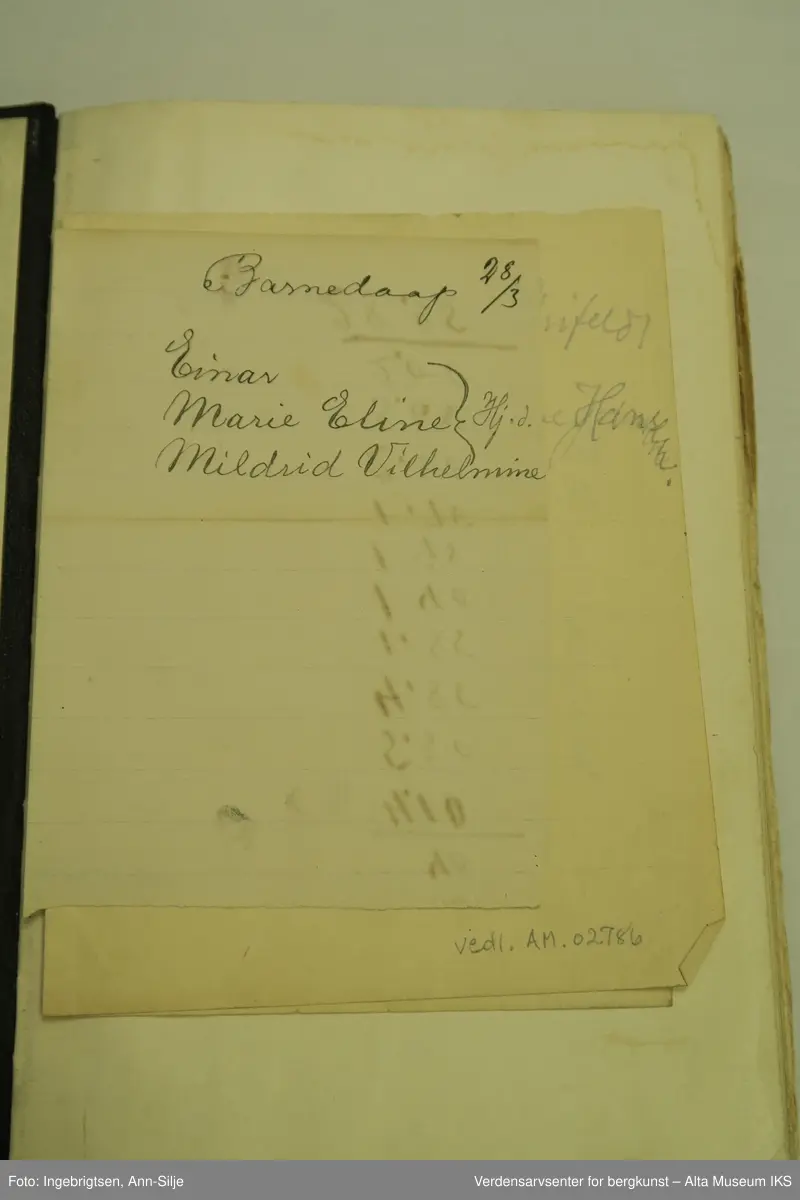 Barnedaap 28/3
Einar
Marie Eline } Hj.d.
Mildrid Vilhelmine
Hans
vedl. AM.02786
Foto: Ingebrigtsen, Ann-Silje
Verdensarvsenter for bergkunst – Alta Museum IKS